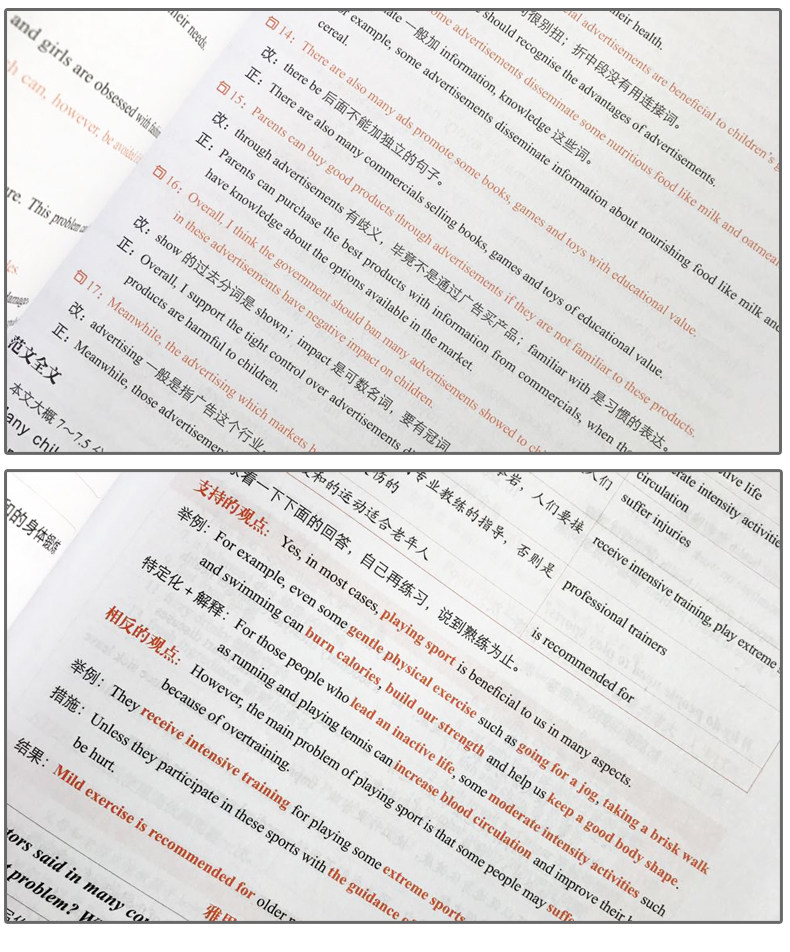 heir needs.
and girls are obsessed with fashion
ch can, however, be avoided
are. This problem
les.
damages
范文全文
本文大概 7～7.5 分
Many chil
their health.
cial advertisements are beneficial to children's
很别扭；折中段没有用连接词。
should recognise the advantages of advertisements.
ome advertisements disseminate some nutritious food like milk and oatmeal
一般加 information, knowledge 这些词。
or example, some advertisements disseminate information about nourishing food like milk and
cereal.
句 14：There are also many ads promote some books, games and toys with educational value.
改：there be 后面不能加独立的句子。
正：There are also many commercials selling books, games and toys of educational value.
句 15：Parents can buy good products through advertisements if they are not familiar to these products.
改：through advertisements 有歧义，毕竟不是通过广告买产品；familiar with 是习惯的表达。
正：Parents can purchase the best products with information from commercials, when the
have knowledge about the options available in the market.
句 16：Overall, I think the government should ban many advertisements showed to chi
in these advertisements have negative impact on children.
改：show 的过去分词是 shown；impact 是可数名词，要有冠词
正：Overall, I support the tight control over advertisements di
products are harmful to children.
句 17：Meanwhile, the advertising which markets
改：advertising 一般是指广告这个行业，
正：Meanwhile, those advertisemen
和的身体锻炼
伤的
专业教练的指导，否则是
人们要接
人们
和的运动适合老年人
tive life
rate intensity activitie
circulation
suffer injuries
receive intensive training, play extreme
professional trainers
is recommended for
看一下下面的回答，自己再练习，说到熟练为止。
支持的观点：Yes, in most cases, playing sport is beneficial to us in many aspects.
举例：For example, even some gentle physical exercise such as going for a jog, taking a brisk walk
and swimming can burn calories, build our strength and help us keep a good body shape.
特定化 + 解释：For those people who lead an inactive life, some moderate intensity activities such
as running and playing tennis can increase blood circulation and improve their
相反的观点：However, the main problem of playing sport is that some people may suffe
because of overtraining.
举例：They receive intensive training for playing some extreme sports
措施：Unless they participate in these sports with the guidance o
be hurt.
结果：Mild exercise is recommended for older
雅
tors said in many co
problem? W